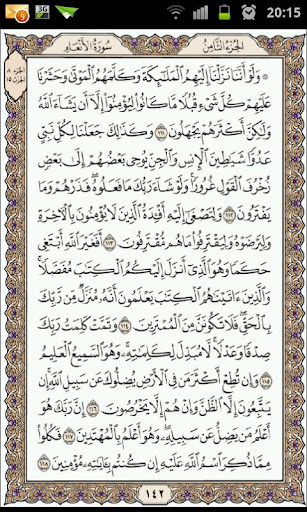 9
3G
20:15
الجزء الثامن
سورة الأنعام
۞ وَلَوْ أَنَّنَا نَزَّلْنَا إِلَيْهِمُ الْمَلَٰئِكَةَ وَكَلَّمَهُمُ الْمَوْتَىٰ وَحَشَرْنَا
عَلَيْهِمْ كُلَّ شَىْءٍ قُبُلًا مَّا كَانُوا لِيُؤْمِنُوا إِلَّا أَن يَشَاءَ اللَّهُ
وَلَٰكِنَّ أَكْثَرَهُمْ يَجْهَلُونَ ١١١ وَكَذَٰلِكَ جَعَلْنَا لِكُلِّ نَبِىٍّ
عَدُوًّا شَيَٰطِينَ الْإِنسِ وَالْجِنِّ يُوحِى بَعْضُهُمْ إِلَىٰ بَعْضٍ
زُخْرُفَ الْقَوْلِ غُرُورًا وَلَوْ شَاءَ رَبُّكَ مَا فَعَلُوهُ فَذَرْهُمْ وَمَا
يَفْتَرُونَ ١١٢ وَلِتَصْغَىٰ إِلَيْهِ أَفْـِٔدَةُ الَّذِينَ لَا يُؤْمِنُونَ بِالْآخِرَةِ
وَلِيَرْضَوْهُ وَلِيَقْتَرِفُوا مَا هُم مُّقْتَرِفُونَ ١١٣ أَفَغَيْرَ اللَّهِ أَبْتَغِى
حَكَمًا وَهُوَ الَّذِى أَنزَلَ إِلَيْكُمُ الْكِتَٰبَ مُفَصَّلًا
وَالَّذِينَ ءَاتَيْنَٰهُمُ الْكِتَٰبَ يَعْلَمُونَ أَنَّهُ مُنَزَّلٌ مِّن رَّبِّكَ
بِالْحَقِّ فَلَا تَكُونَنَّ مِنَ الْمُمْتَرِينَ ١١٤ وَتَمَّتْ كَلِمَتُ رَبِّكَ
صِدْقًا وَعَدْلًا لَّا مُبَدِّلَ لِكَلِمَٰتِهِ وَهُوَ السَّمِيعُ الْعَلِيمُ
١١٥ وَإِن تُطِعْ أَكْثَرَ مَن فِى الْأَرْضِ يُضِلُّوكَ عَن سَبِيلِ اللَّهِ إِن
يَتَّبِعُونَ إِلَّا الظَّنَّ وَإِنْ هُمْ إِلَّا يَخْرُصُونَ ١١٦ إِنَّ رَبَّكَ هُوَ
أَعْلَمُ مَن يَضِلُّ عَن سَبِيلِهِ وَهُوَ أَعْلَمُ بِالْمُهْتَدِينَ ١١٧ فَكُلُوا
مِمَّا ذُكِرَ اسْمُ اللَّهِ عَلَيْهِ إِن كُنتُم بِـَٔايَٰتِهِ مُؤْمِنِينَ ١١٨
١٤٢